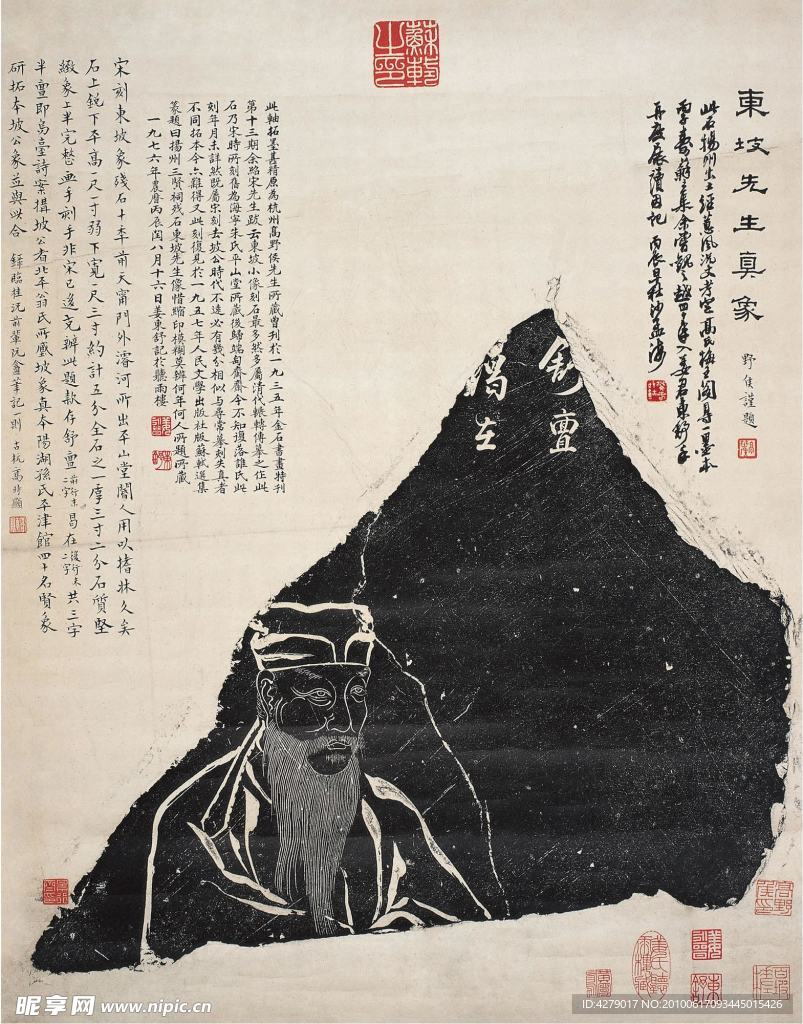 東坡先生真象
野侯謹題
此石揚州出土經蕙風沈丈考定高氏梅王閣尋墨本
再度展讀因記
丙辰
蘇軾之印
舒亶
昌在
此軸拓墨甚精原為杭州高野侯先生所藏曾刊於一九三五年金石書畫特刊
第十三期余紹宋先生跋云東坡小像刻石最多然多屬清代輾轉傳摹之作此
石乃宋時所刻舊為海寧朱氏平山堂所藏後歸端匋齋今不知復落誰氏此
刻年月未詳然既屬宋刻去坡公時代不遠必有幾分相似與尋常摹刻失真者
不同拓本今亦難得又此刻復見於一九五七年人民文學出版社版蘇軾選集
篆題曰揚州三賢祠殘石東坡先生像惜縮印模糊莫辨何年何人所題所藏
一九七六年農曆丙辰閏八月十六日姜東舒記於聽雨樓
宋刻東坡象殘石十年前天甯門外濬河所出平山堂閽人用以搘牀久矣
石上銳下平高一尺一寸弱下寬一尺三寸約計五分全石之一厚三寸二分石質堅
緻象上半完整畫手刻手非宋已後克辦此題款存舒亶前行末二字昌在後行末二字共三字
半亶即烏臺詩案搆坡公者北平翁氏所橅坡象真本陽湖孫氏平津館四十名賢象
研拓本坡公象並與此合 錄臨桂況前輩阮盦筆記一則 古杭高時顯
昵享网 www.nipic.cn
ID:4279017 NO:20100617093445015426